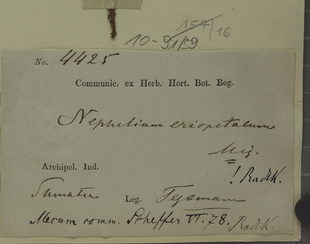 157/16
10-91/59
No. 4425
Communic. ex Herb. Hort. Bot. Bog.
Nephelium eriopetalum
Miq.
! Radlk.
Archipel. Ind.
Sumatra Leg. Teysmann
Mecum comm. Scheffer VI. 78. Radlk.